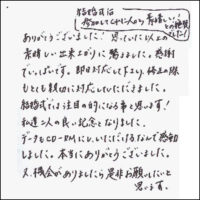 結婚式は
ありがとうございました！思っていた以上の
素晴しい出来上がりに驚きました。感謝
でいっぱいです。即日対応して下さり、修正の際
もとても親切に対応していただきました。
結婚式では注目の的になる事と思います！
私達2人の良い記念となりました。
データもCD-RMにしていただけるなんて感動
しました。本当にありがとうございました。
又、機会がありましたら是非お願いしたいと
思います。